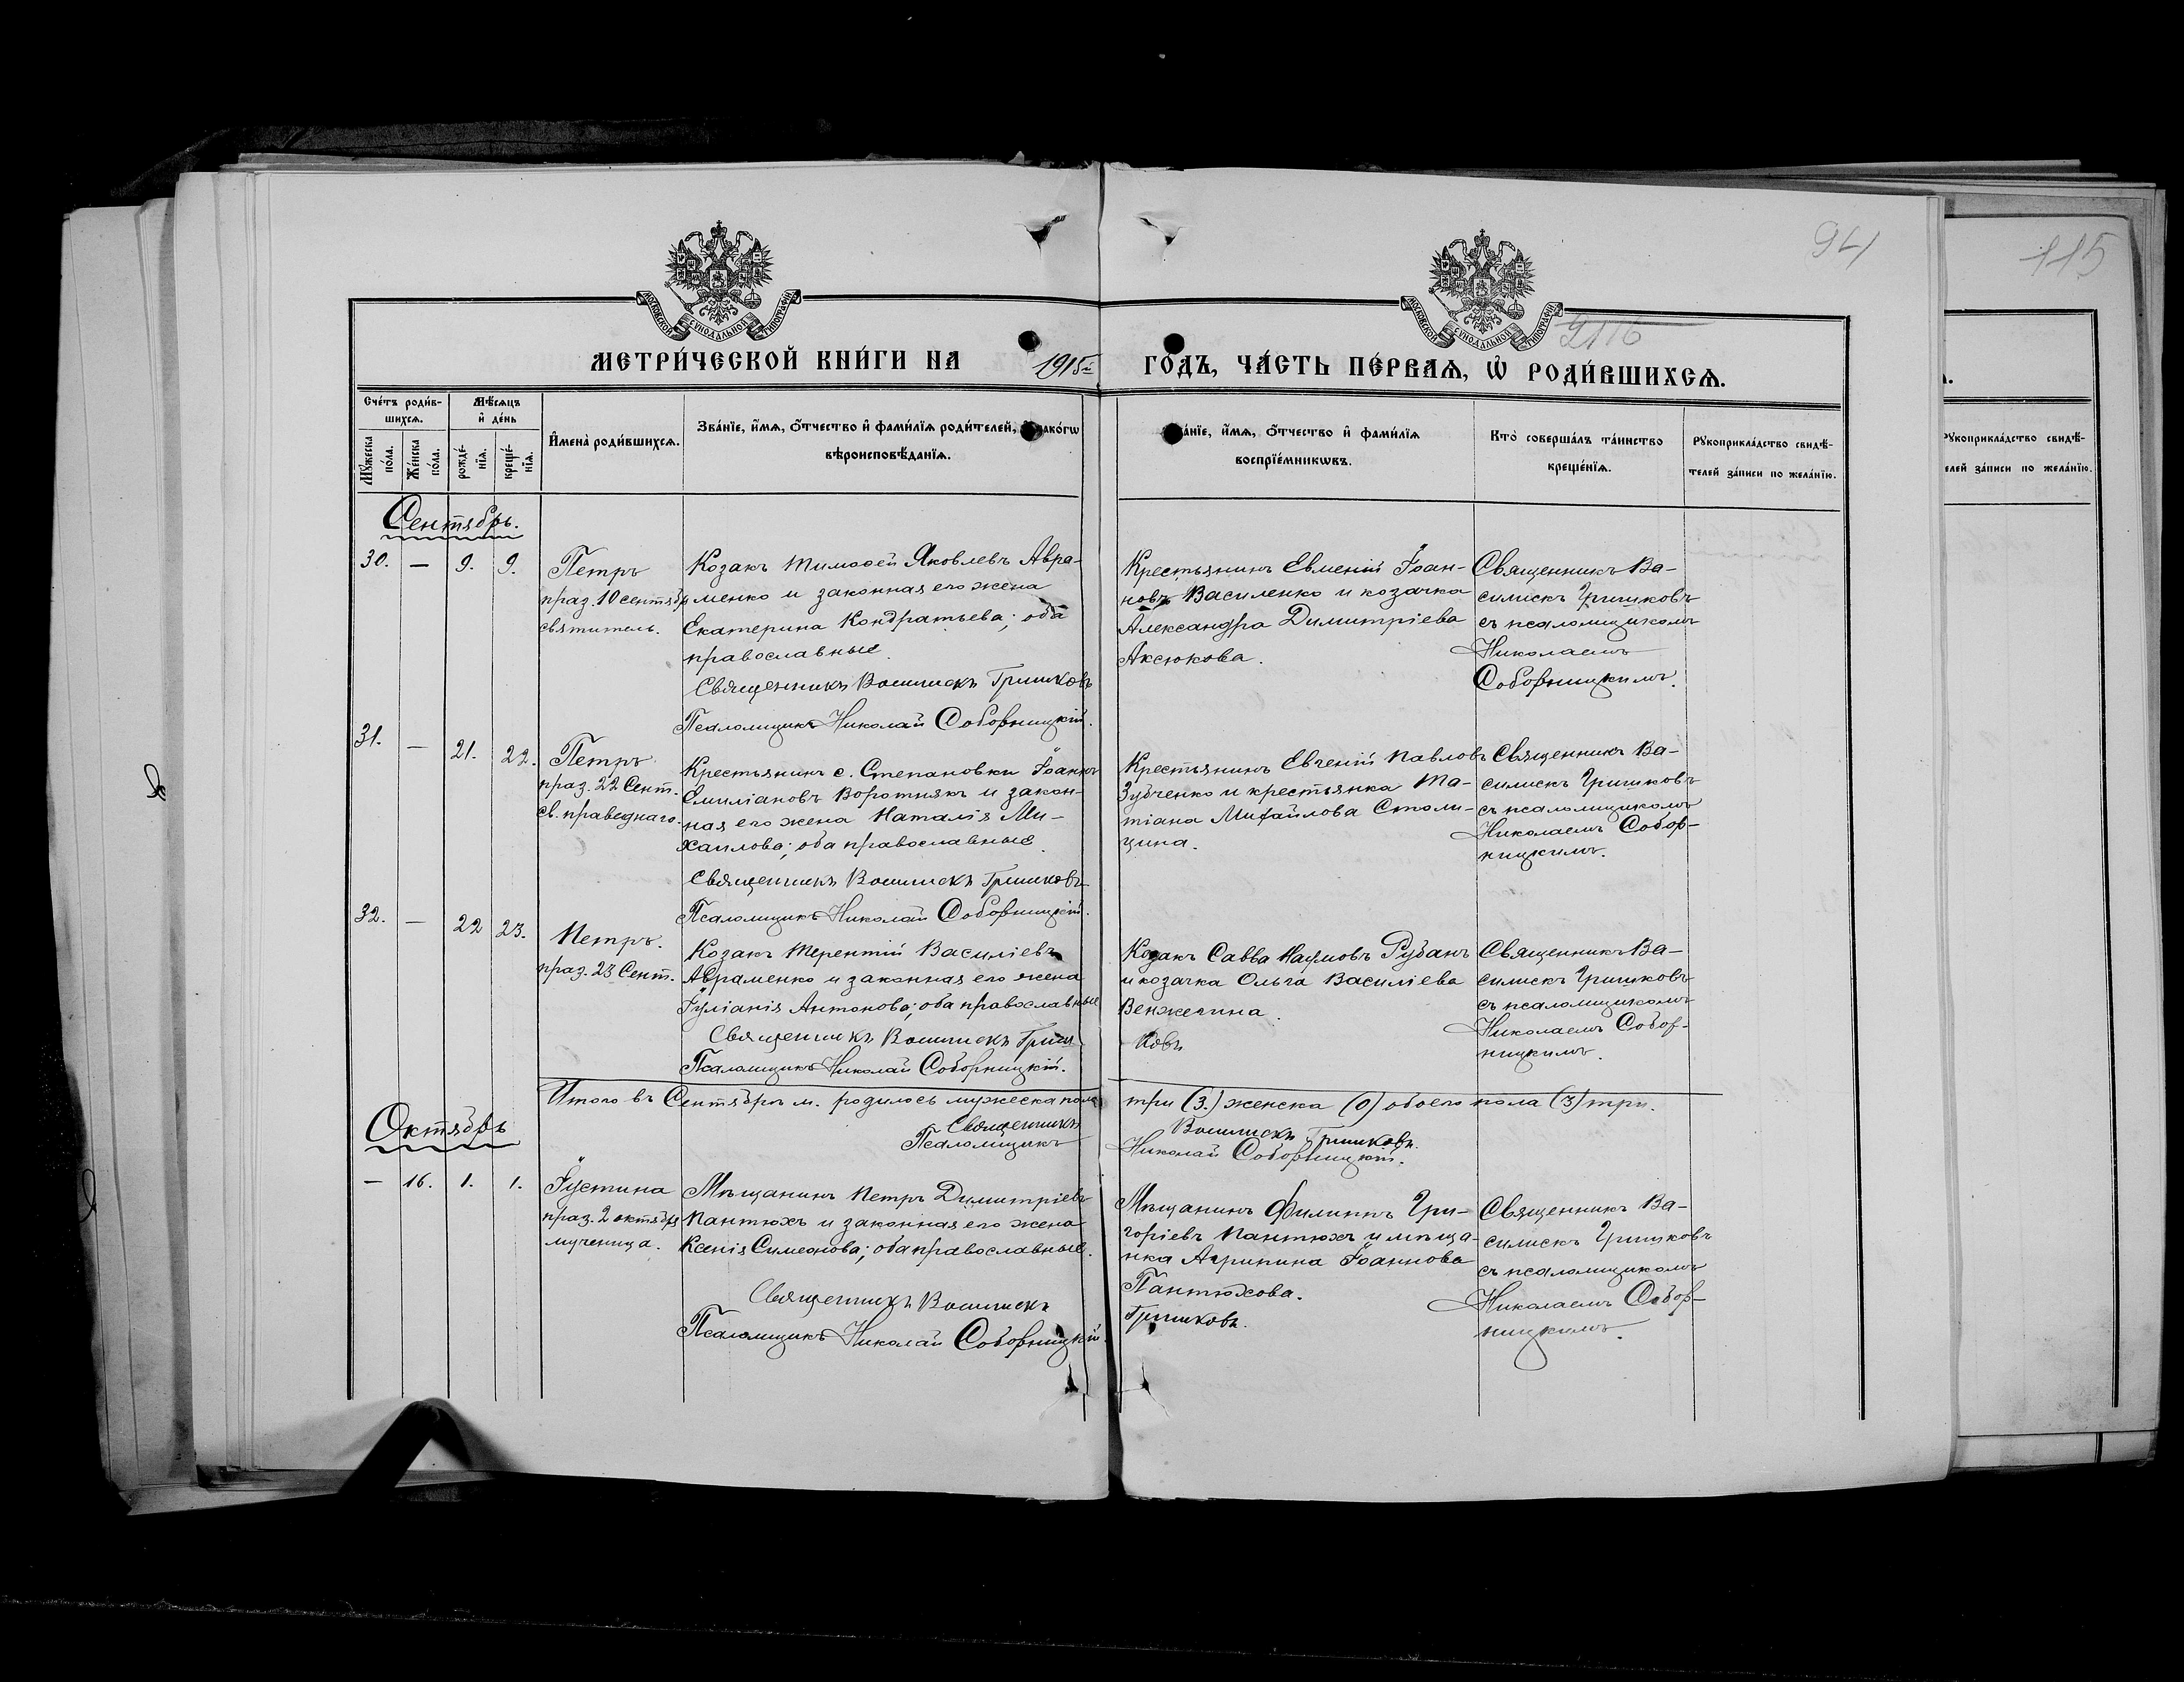 94
115
2116
МОСКОВСКОЙ СѴНОДАЛЬНОЙ ТИПОГРАФІИ
МОСКОВСКОЙ СѴНОДАЛЬНОЙ ТИПОГРАФІИ
МЕТРИ́ЧЕСКОЙ КНИ́ГИ НА 1915й ГО́ДЪ, ЧА́СТЬ ПЕ́РВАѦ, Ѡ҆ РОДИ́ВШИХСѦ.
Сче́тъ роди́в-
шихсѧ.
Мꙋ́жеска по́ла.
Же́нска по́ла.
Мѣ́сѧцъ
и҆ де́нь
рожде́-
нїѧ.
креще́-
нїѧ.
И҆мена̀ роди́вшихсѧ.
Зва́нїе, и҆́мѧ, ѻ҆́тчество и҆ фами́лїѧ роди́телей, и҆ како́гѡ
вѣроисповѣ́данїѧ.
Зва́нїе, и҆́мѧ, ѻ҆́тчество и҆ фами́лїѧ
воспрїе́мникѡвъ.
Кто̀ соверша́лъ та́инство
креще́нїѧ.
Рꙋкоприкла́дство свидѣ́-
телей за́писи по жела́нїю.
Рꙋкоприкла́дство свидѣ́-
елей за́писи по жела́нїю.
Сентябрь.
30. — 9. 9.
Петръ
праз. 10 сентябр
святитель.
Козакъ Тимоѳей Яковлевъ Авра-
менко и законная его жена
Екатерина Кондратьева; оба
православные.
Священникъ Василискъ Гришковъ
Псаломщикъ Николай Соборницкій.
Крестьянинъ Евмений Іоан-
новъ Василенко и козачка
Александра Димитріева
Аксюкова.
Священникъ Ва-
силискъ Гришковъ
съ псаломщикомъ
Николаемъ
Соборницкимъ.
31. — 21. 22.
Петръ
праз. 22 Сент.
св. праведнаго.
Крестьянинъ с. Степановки Іоаннъ
Емиліановъ Воротнякъ и закон-
ная его жена Наталія Ми-
хаилова; оба православные.
Священникъ Василискъ Гришковъ
Псаломщикъ Николай Соборницкій.
Крестьянинъ Евгеній Павловъ
Зубченко и крестьянка Та-
тіана Михайлова Столи-
цина.
Священникъ Ва-
силискъ Гришковъ
съ псаломщикомъ
Николаемъ Собор-
ницкимъ.
32. — 22 23.
Петръ.
праз. 23 Сент.
Козакъ Терентій Василіевъ
Авраменко и законная его жена
Іуліанія Антонова; оба православные
Священникъ Василискъ Гриш
Псаломщикъ Николай Соборницкій.
Козакъ Савва Наумовъ Рубанъ
и козачка Ольга Василіева
Венжегина.
ковъ
Священникъ Ва-
силискъ Гришковъ
съ псаломщикомъ
Николаемъ Собор-
ницкимъ.
Итого въ Сентябрѣ м. родилось мужеска пола три (3.) женска (0) обоего пола (3) три.
Священникъ Василискъ Гришковъ.
Псаломщикъ Николай Соборницкій.
Октябрь
— 16. 1. 1.
Іустина
праз. 2 октября
мученица.
Мѣщанинъ Петръ Димитріевъ
Пантюхъ и законная его жена
Ксенія Симеонова; оба православные.
Священникъ Василискъ
Псаломщикъ Николай Соборницкій.
Мѣщанинъ Филиппъ Гри-
горіевъ Пантюхъ и мѣща-
нка Агрипина Іоаннова
Пантюхова.
Гришковъ.
Священникъ Ва-
силискъ Гришковъ
съ псаломщикомъ
Николаемъ Собор-
ницкимъ.